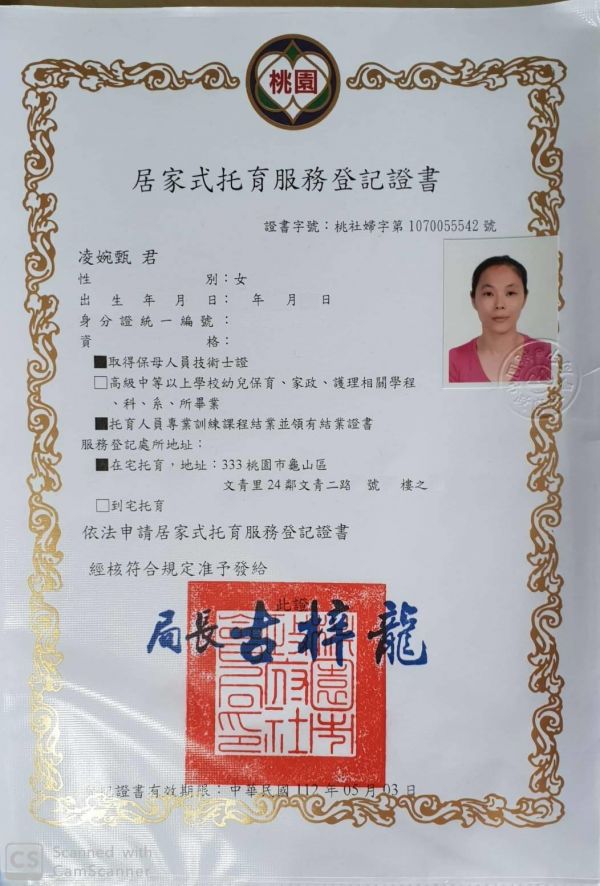 桃園
居家式托育服務登記證書
證書字號：桃社婦字第1070055542號
凌婉甄 君
性別：女
出生年月日： 年 月 日
身分證統一編號：
資格：
■取得保母人員技術士證
□高級中等以上學校幼兒保育、家政、護理相關學程
、科、系、所畢業
■托育人員專業訓練課程結業並領有結業證書
服務登記處所地址：
■在宅托育，地址：333桃園市龜山區
文青里24鄰文青二路 號 樓之
□到宅托育
依法申請居家式托育服務登記證書
經核符合規定准予發給
此證
局長 古梓龍
桃園市政府社會局印
登記證書有效期限：中華民國 112 年 05 月 03 日
CS Scanned with
CamScanner